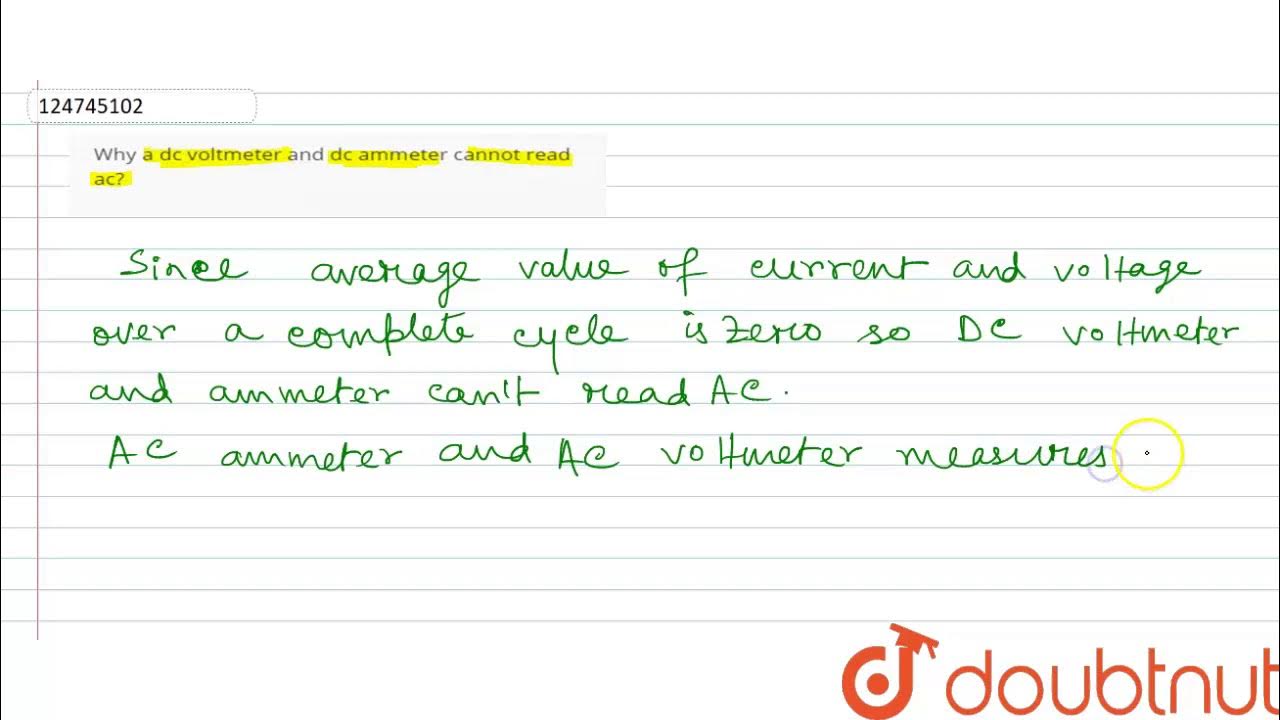 124745102
Why a dc voltmeter and dc ammeter cannot read
ac?
Since average value of current and voltage
over a complete cycle is zero so DC voltmeter
and ammeter can't read AC.
AC ammeter and AC voltmeter measures
doubtnut